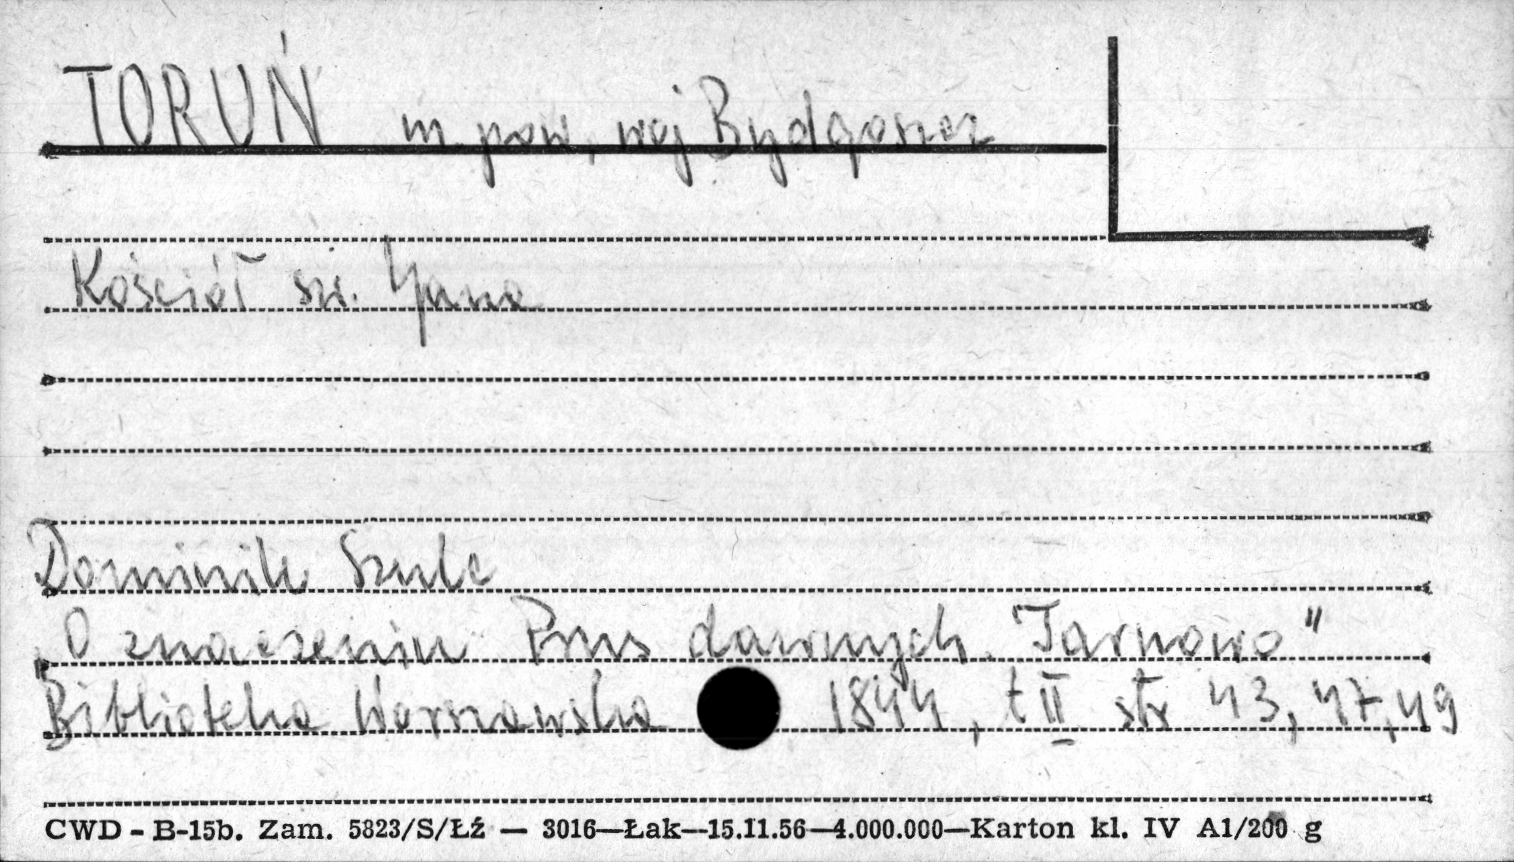 TORUŃ m. pow, woj Bydgoszcz
Kościół św. Jana
Dominik Szulc
O znaczeniu Prus dawnych. "Tarnowo"
Biblioteka Warszawska 1844, t II str 43, 47, 49
CWD - B-15b. Zam. 5823/S/Łź — 3016—Łak—15.II.56—4.000.000—Karton kl. IV A1/200 g